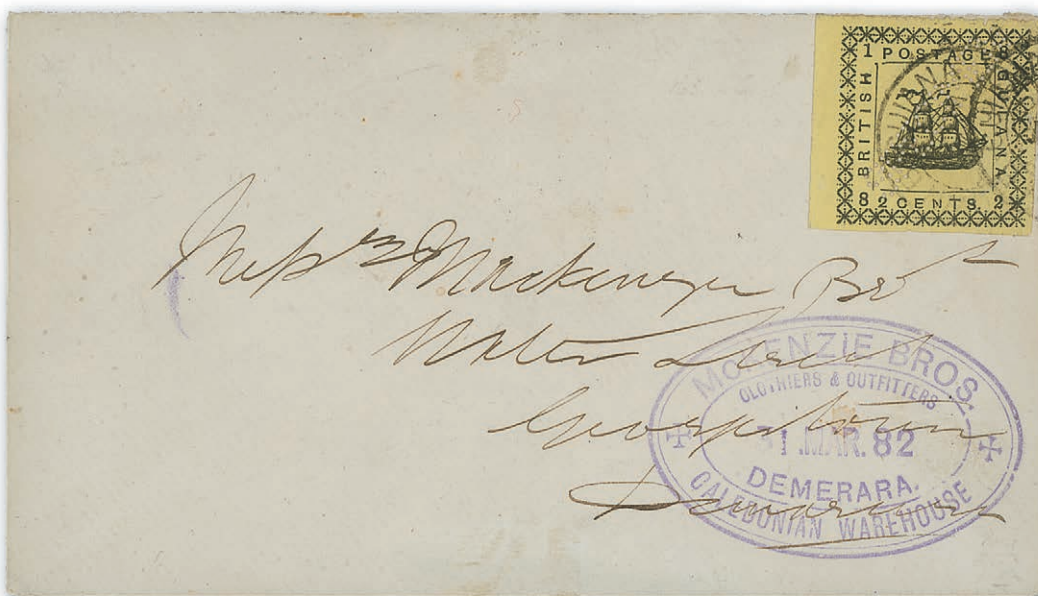 1 POSTAGE 8
BRITISH
GUIANA
8 2 CENTS. 2
GUIANA
Mess.rs Mackenzie Bro.s
Water Street
Georgetown
Demerara
McKENZIE BROS.
CLOTHIERS & OUTFITTERS
31 MAR. 82
DEMERARA.
CALEDONIAN WAREHOUSE